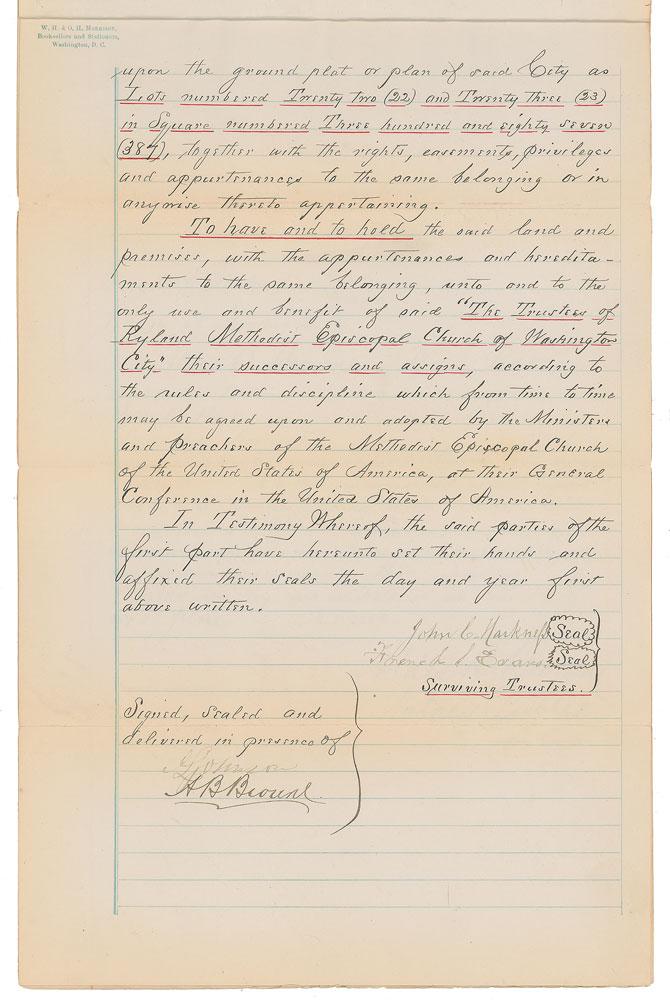 W. H. & O. H. Morrison,
Booksellers and Stationers,
Washington, D. C.
upon the ground plat or plan of said City as
Lots numbered Twenty two (22) and Twenty Three (23)
in Square numbered Three hundred and eighty seven
(387), together with the rights, easements, privileges
and appurtenances to the same belonging or in
anywise thereto appertaining.
To have and to hold the said land and
premises, with the appurtenances and heredita-
ments to the same belonging, unto and to the
only use and benefit of said "The Trustees of
Ryland Methodist Episcopal Church of Washington
City" their successors and assigns, according to
the rules and discipline which from time to time
may be agreed upon and adopted by the Ministers
and preachers of the Methodist Episcopal Church
of the United States of America, at their General
Conference in the United States of America.
In Testimony Whereof, the said parties of the
first part have hereunto set their hands and
affixed their seals the day and year first
above written.
John C. Harkness Seal
French S. Evans Seal
Surviving Trustees.
Signed, sealed and
delivered in presence of
Johnson
A B Browne